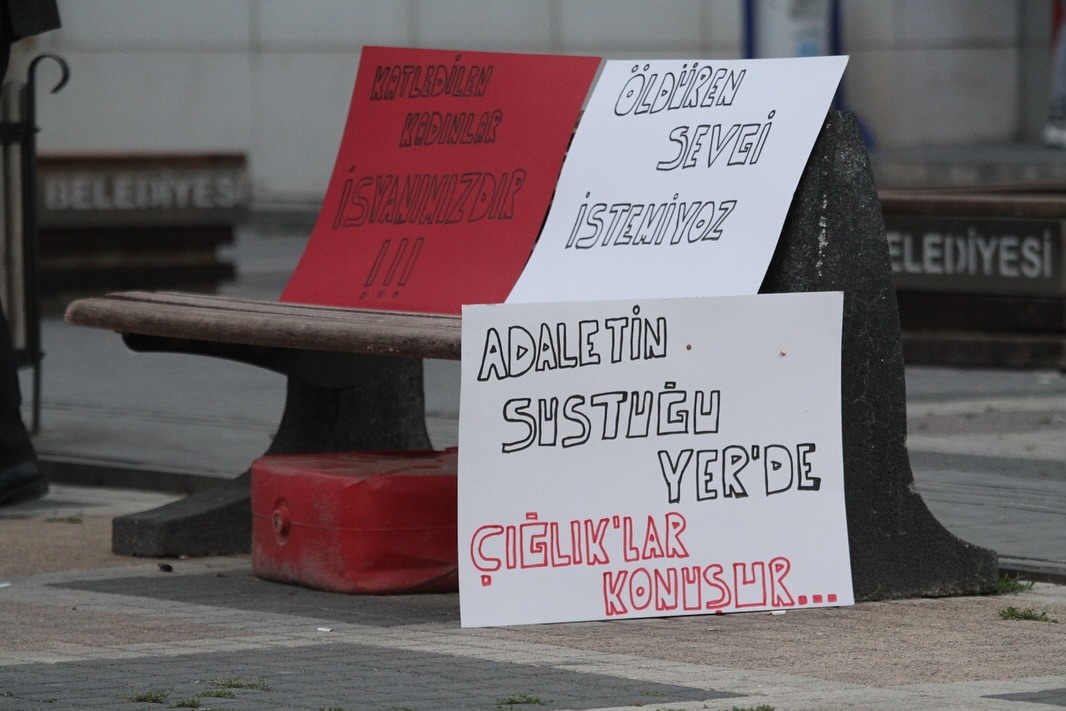 KATLEDİLEN
KADINLAR
İSYANIMIZDIR
!!!
ÖLDÜREN
SEVGİ
İSTEMİYOZ
ADALETİN
SUSTUĞU
YER'DE
ÇIĞLIK'LAR
KONUSUR...
BELEDİYESİ
ELEDİYESİ